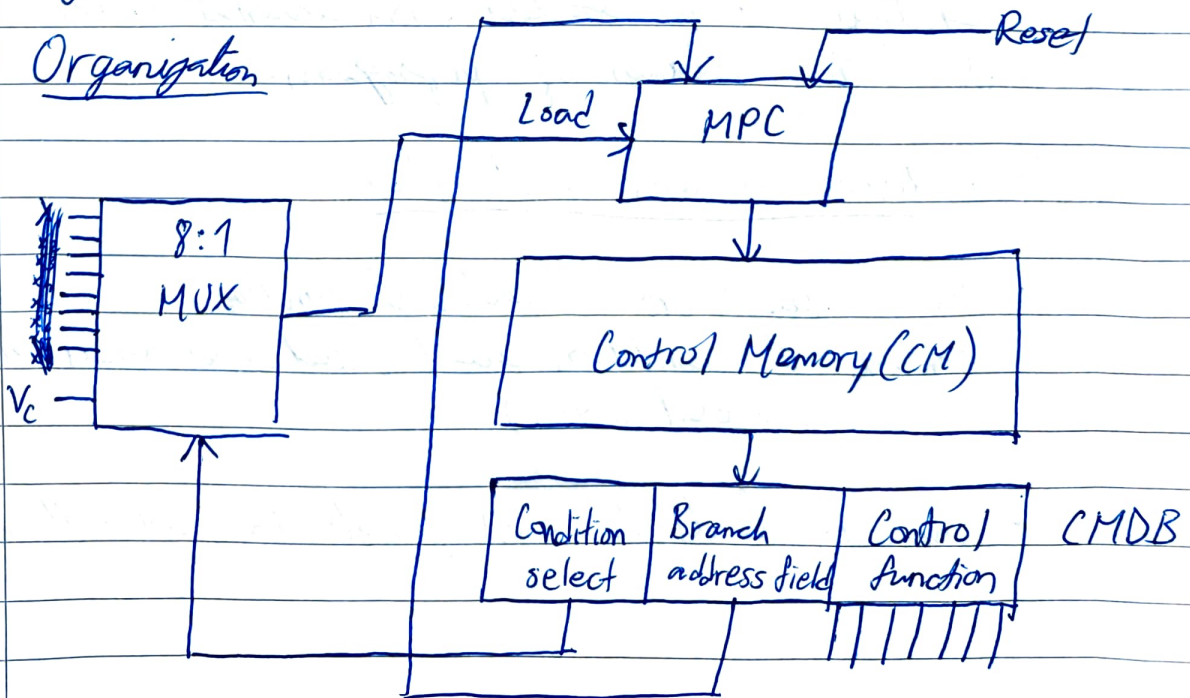 Organization
Reset
Load
MPC
8:1
MUX
Control Memory (CM)
Vc
Condition
select
Branch
address field
Control
function
CMDB